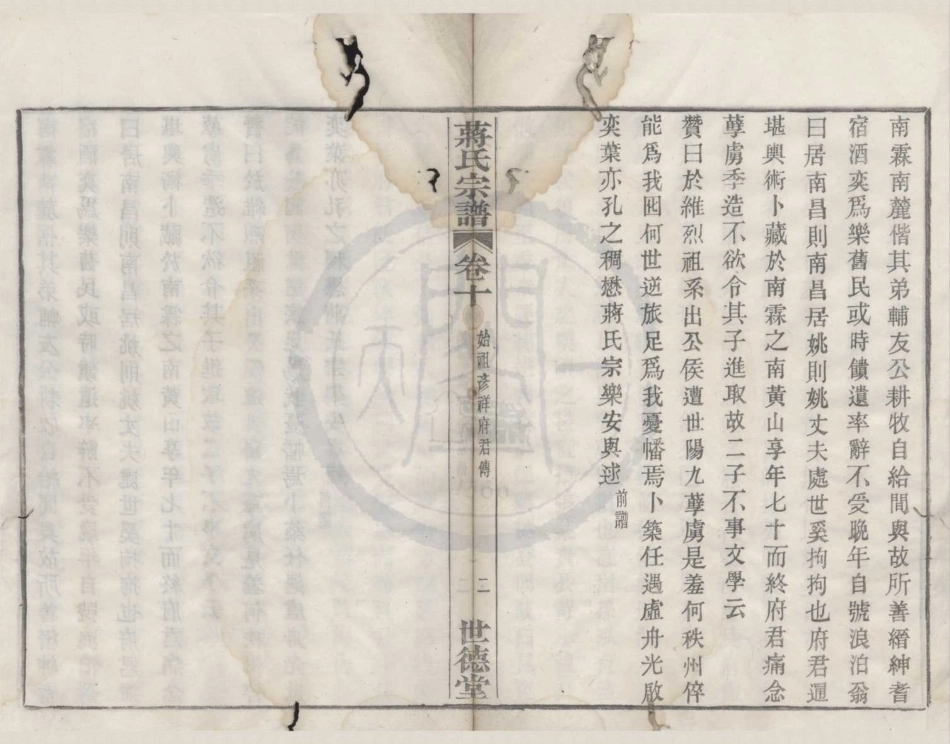 南霖南麓偕其弟輔友公耕牧自給間與故所善縉紳耆
宿酒奕爲樂舊民或時饋遺率辭不受晚年自號浪泊翁
曰居南昌則南昌居姚則姚丈夫處世奚拘拘也府君通
堪輿術卜藏於南霖之南黃山享年七十而終府君痛念
孽虜季造不欲令其子進取故二子不事文學云
贊曰於維烈祖系出公侯遭世陽九孽虜是羞何秩州倅
能爲我囮何世逆旅足爲我憂幡焉卜築任遇虛舟光啟
奕葉亦孔之稠懋蔣氏宗樂安與逑前譜
蔣氏宗譜 卷十 始祖彦祥府君傳 二 世德堂